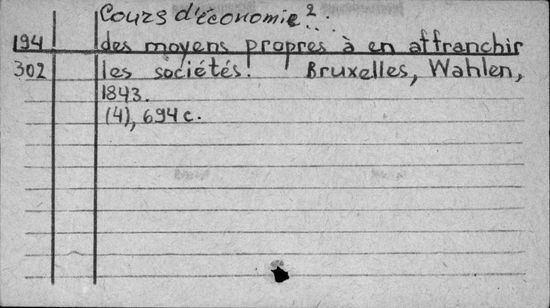 Cours d'économie²...
194 des moyens propres à en affranchir
302 les sociétés. Bruxelles, Wahlen,
1843.
(4), 694 c.